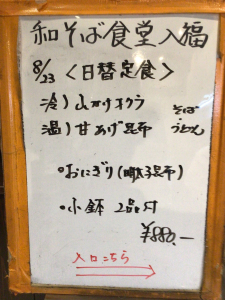 和そば食堂 入福
8/23 <日替定食>
冷) 山かけオクラ
温) 甘あげ昆布
そば
うどん
•おにぎり(明太子昆布)
•小鉢 2品付
¥880.-
入口こちら